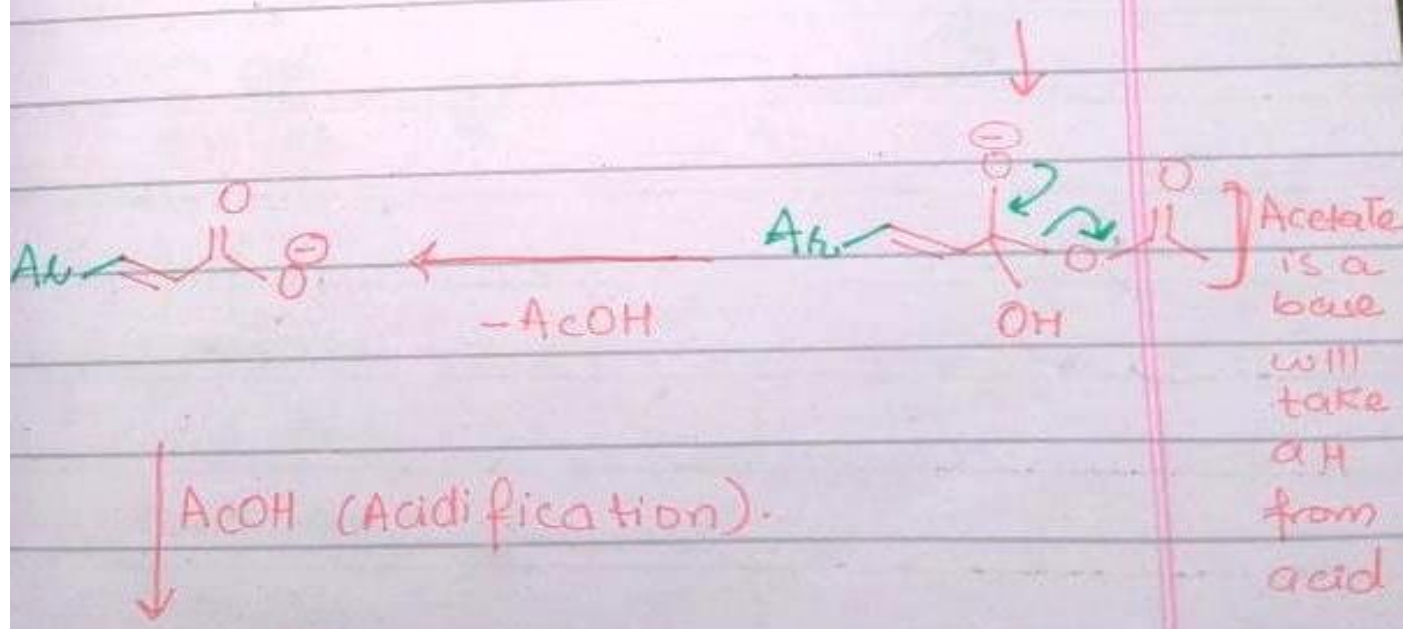 ⊖
O
O
Ar
O
O
⊖
Ar
O
OH
-AcOH
Acetate
is a
base
will
take
a H
from
acid
AcOH (Acidification).